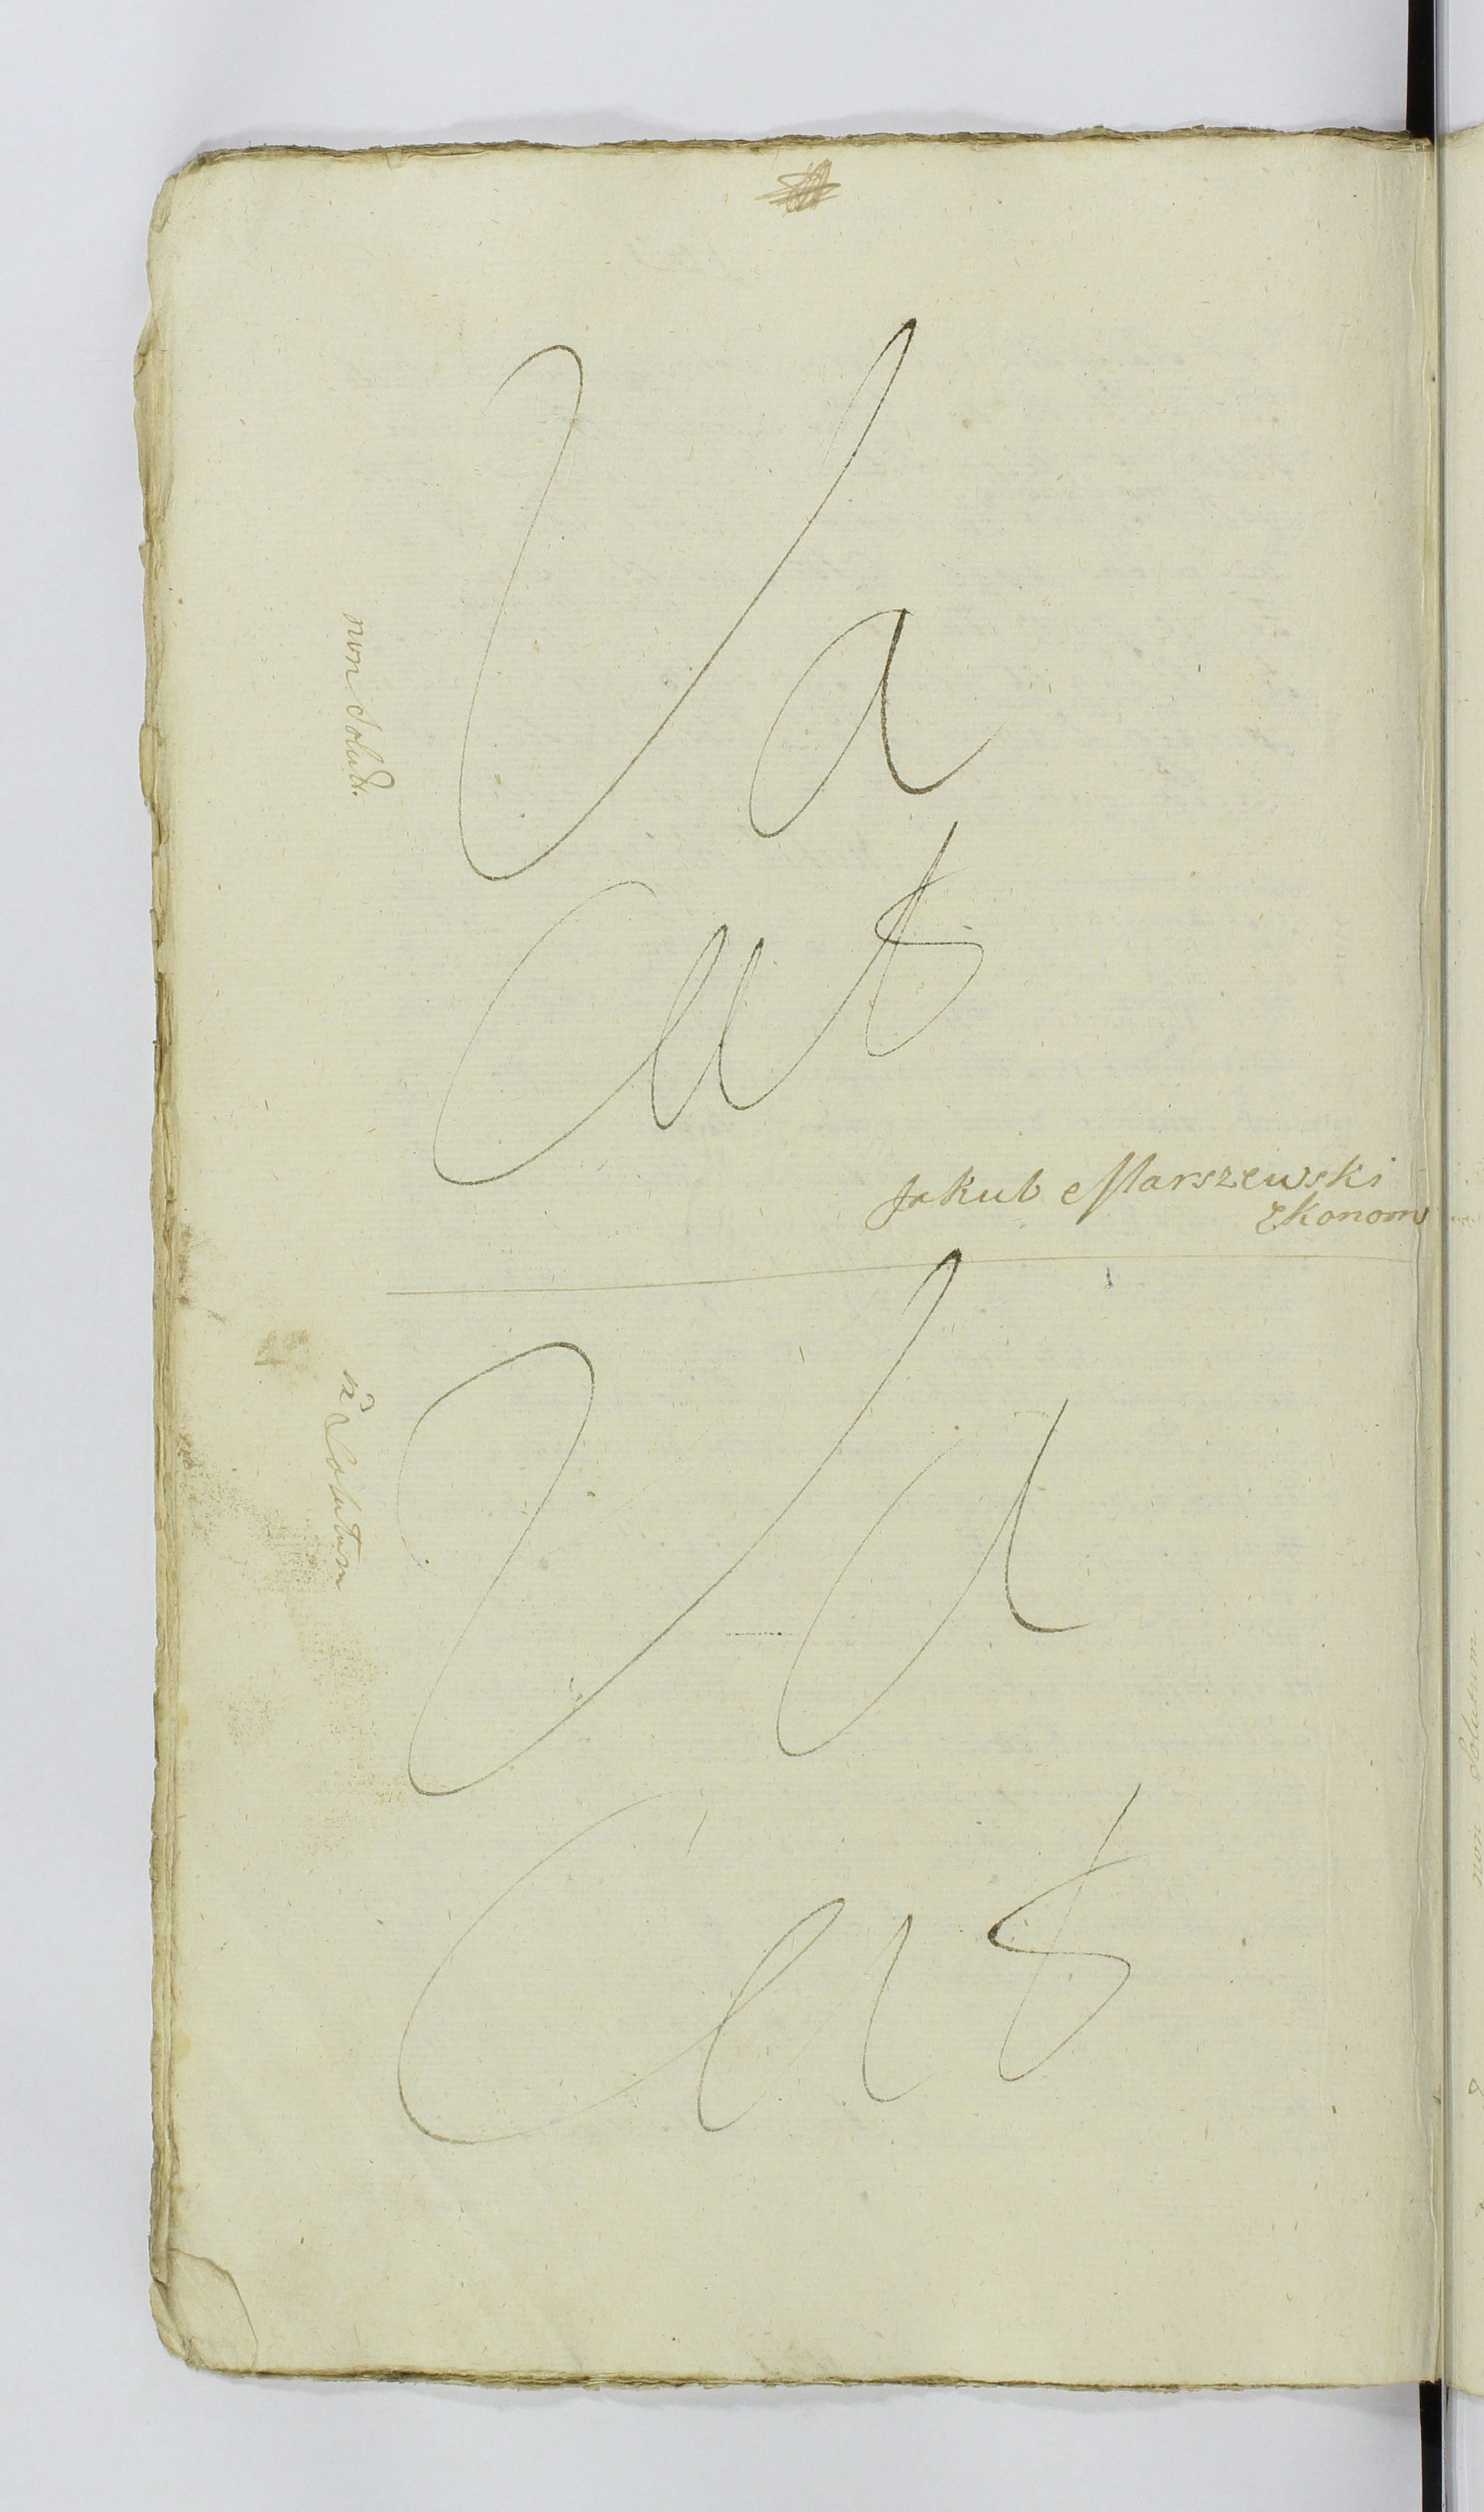 Va
cat
non Solut.
Jakub Marszewski
Ekonom
Va
cat
ñ Solutum